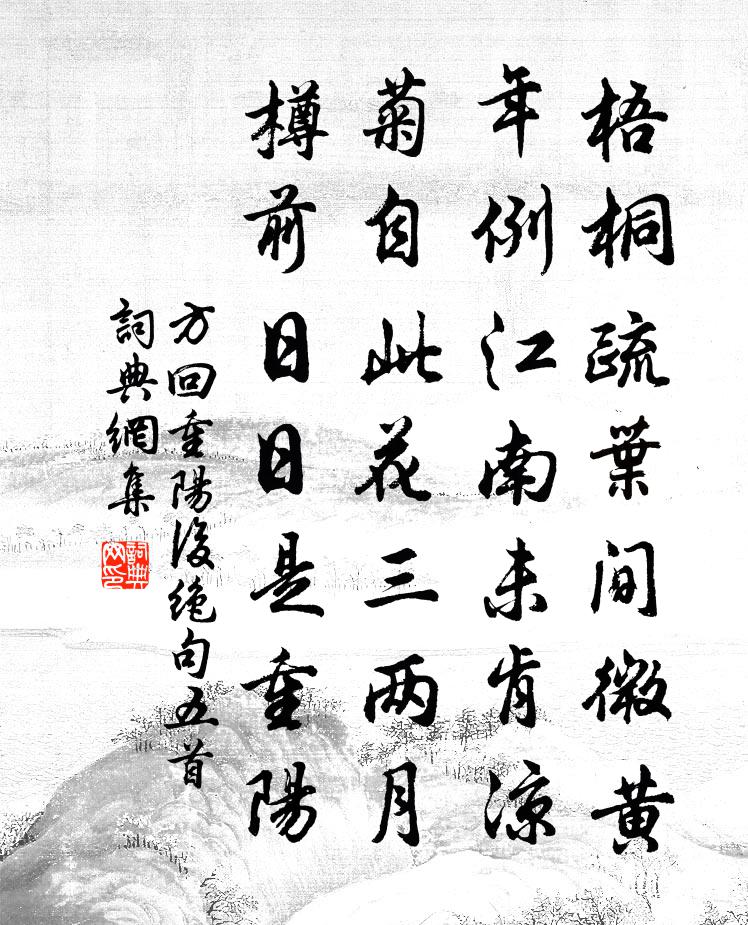 梧桐疏葉間微黄
年例江南未肯凉
菊自此花三两月
樽前日日是重陽
方回重陽後绝句五首
詞典網集
詞典網印